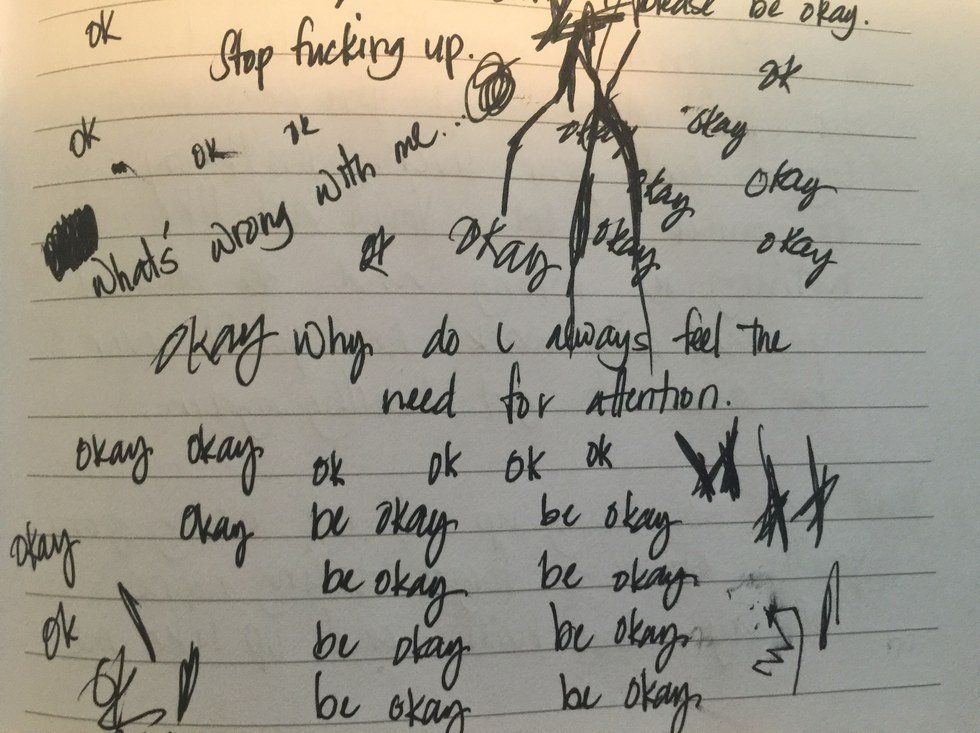 please be okay.
ok
Stop fucking up.
ok
ok
ok
ok
okay
okay
What's wrong with me...
okay
okay
ok
okay
okay
okay
okay Why do i always feel the
need for attention.
okay okay ok ok ok ok
okay be okay be okay
okay
be okay be okay
ok
be okay be okay
ok
be okay be okay